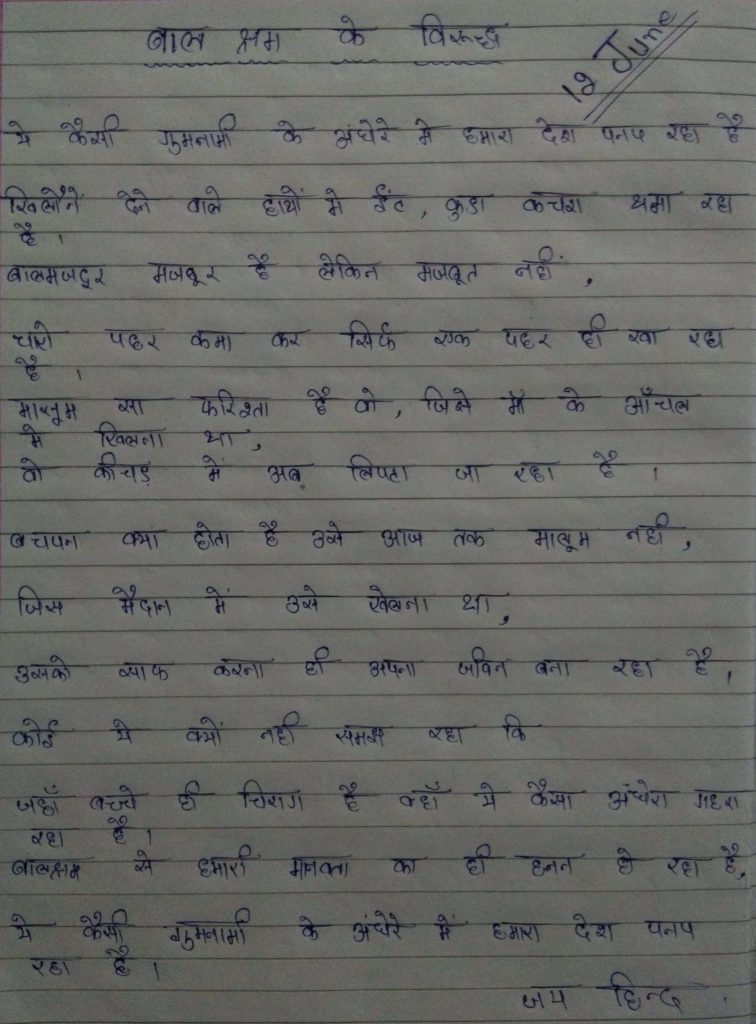 बाल श्रम के विरूद्ध
12 June
ये कैसी गुमनामी के अंधेरे मे हमारा देश पनप रहा है
खिलौने देने वाले हाथों मे ईंट, कुडा कचरा थमा रहा
है।
बालमजदुर मजबूर है लेकिन मजबूत नहीं,
चारो पहर कमा कर सिर्फ एक पहर ही खा रहा
है।
मासूम सा फरिश्ता है वो, जिसे माँ के आँचल
मे खिलना था,
वो कीचड़ में अब लिपटा जा रहा है।
बचपन क्या होता है उसे आज तक मालूम नहीं,
जिस मैदान में उसे खेलना था,
उसको साफ करना ही अपना जीवन बना रहा है,
कोई ये क्यों नही समझ रहा कि
जहाँ बच्चे ही चिराग है वहाँ ये कैसा अंधेरा गहरा
रहा है।
बालश्रम से हमारी मानवता का ही हनन हो रहा है,
ये कैसी गुमनामी के अंधेरे में हमारा देश पनप
रहा है।
जय हिन्द